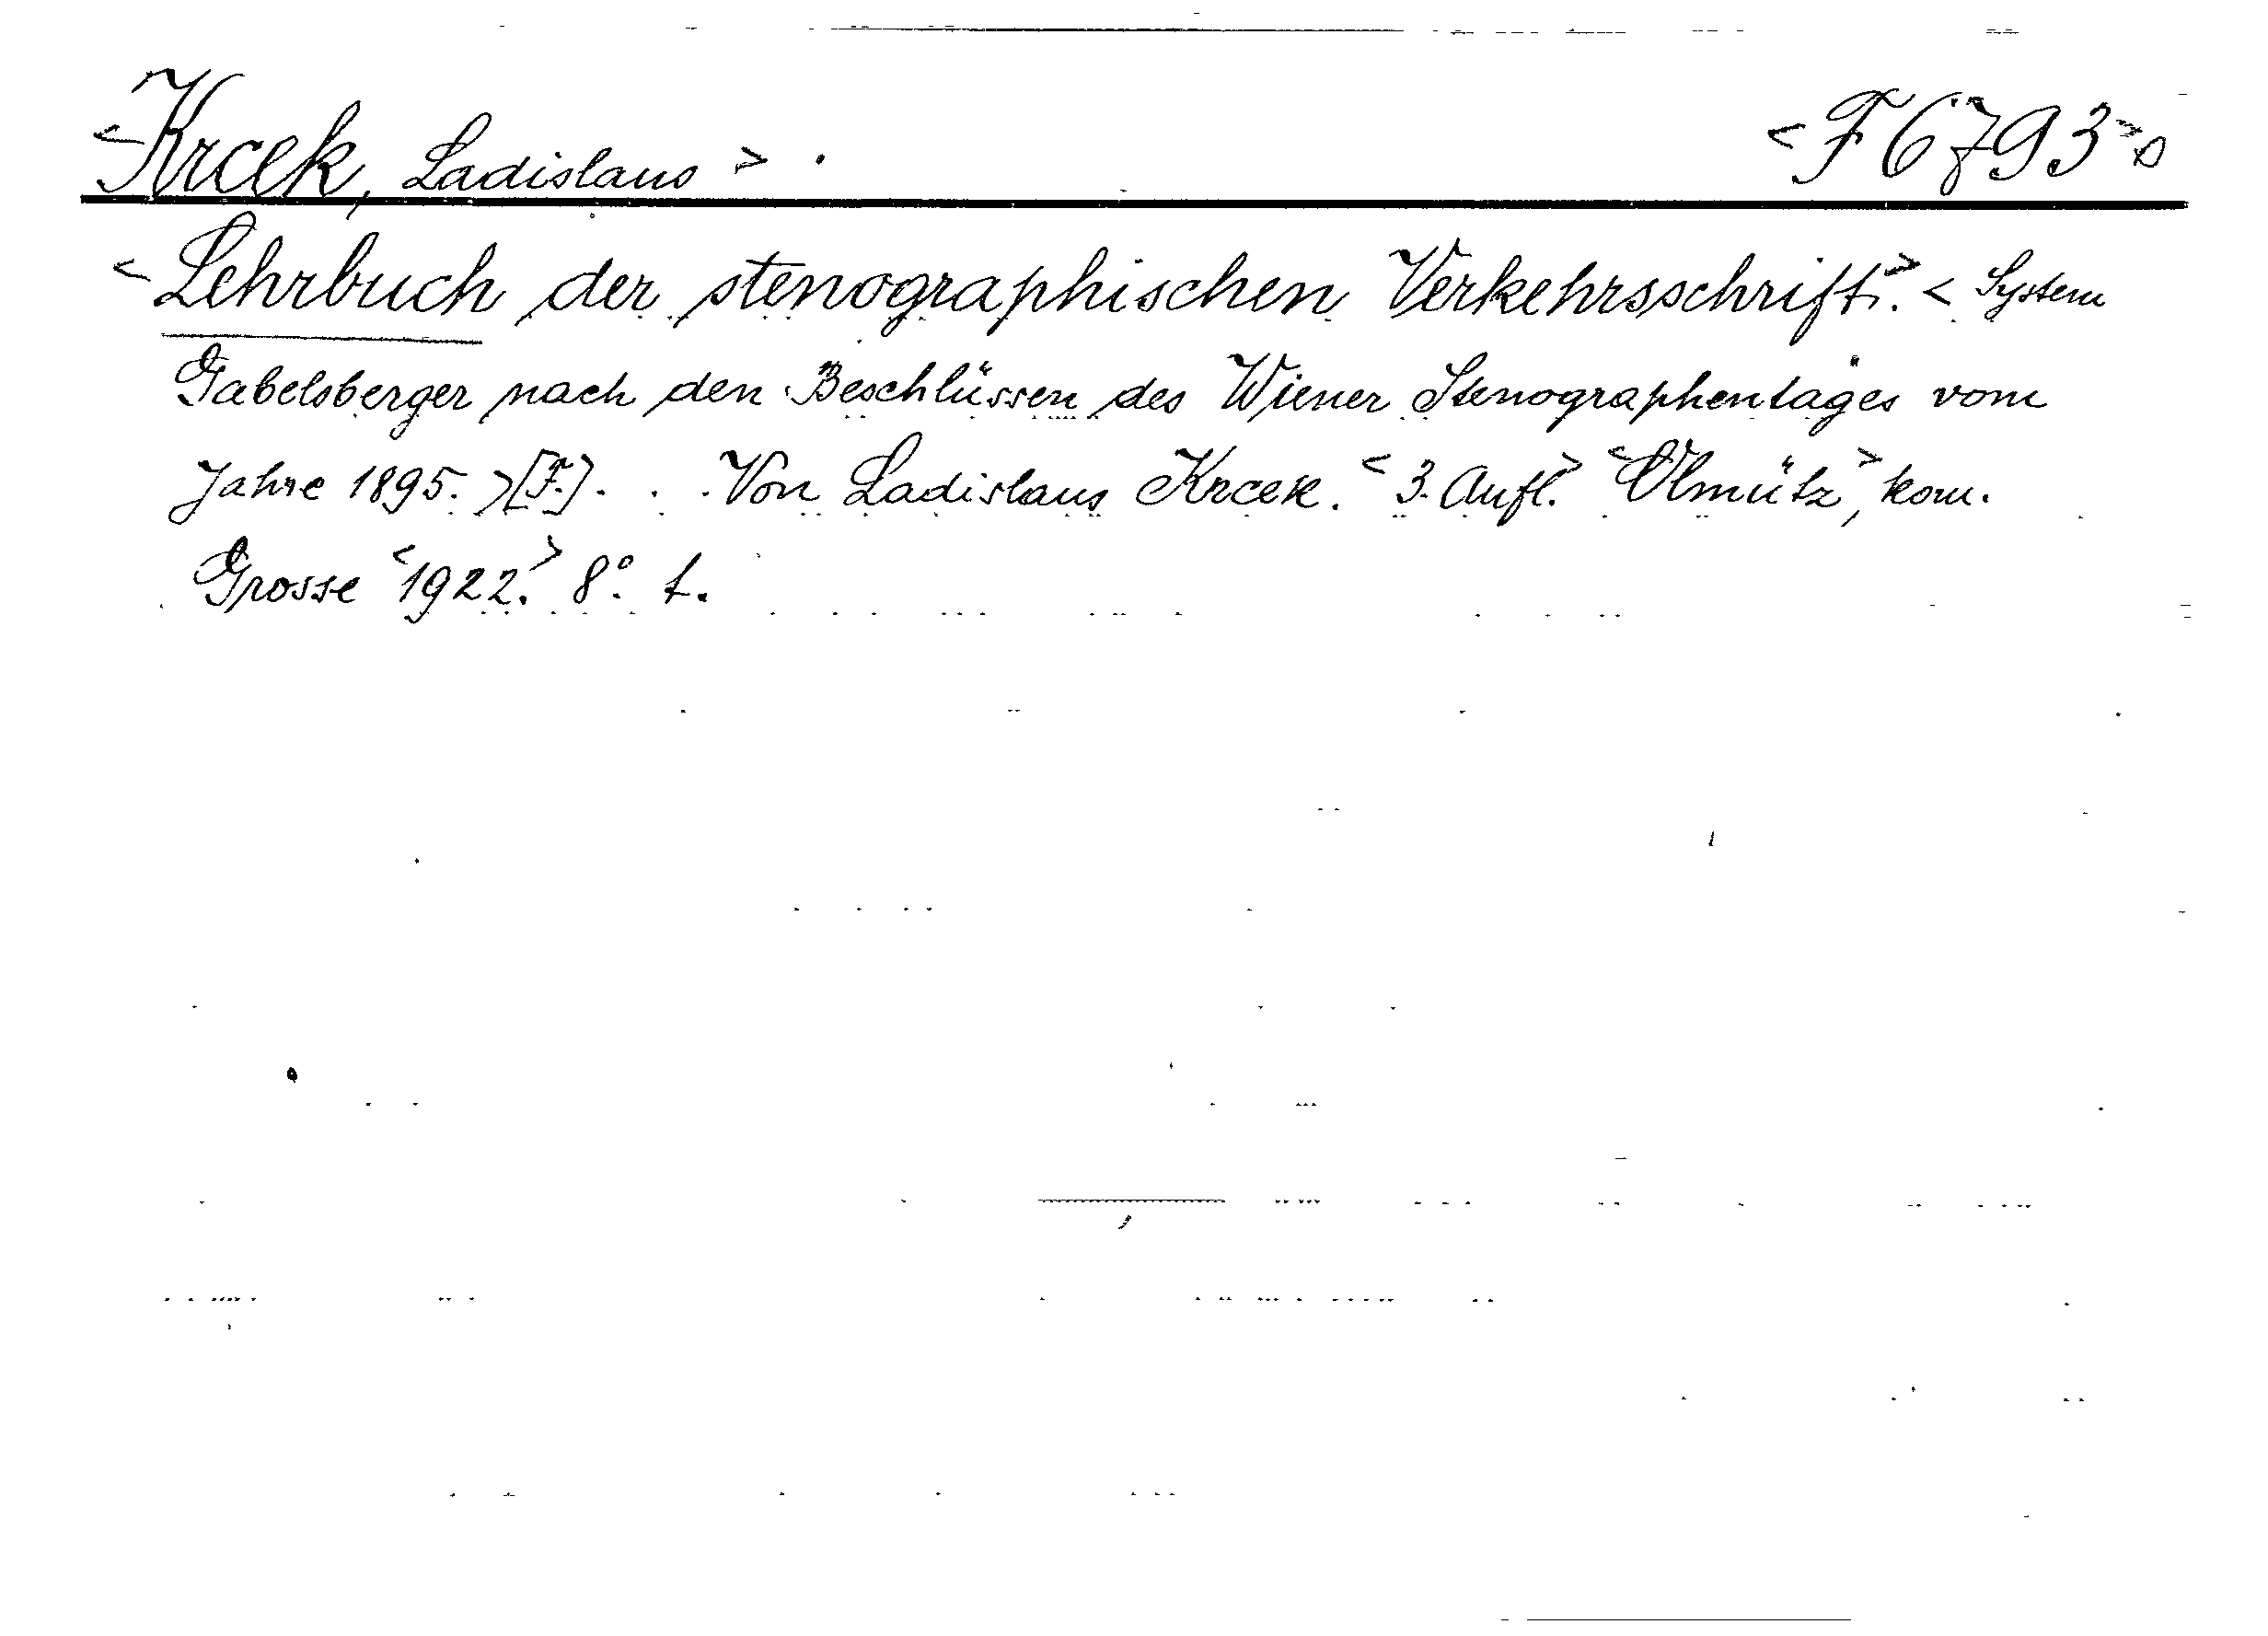 <Krcek, Ladislaus>. <F 6793>
<Lehrbuch der stenographischen Verkehrsschrift.> <System
Gabelsberger nach den Beschlüssen des Wiener Stenographentages vom
Jahre 1895.>[F.]. . . Von Ladislaus Krcek. <3. Aufl.> <Olmütz,> kom.
Grosse <1922.> 8°.